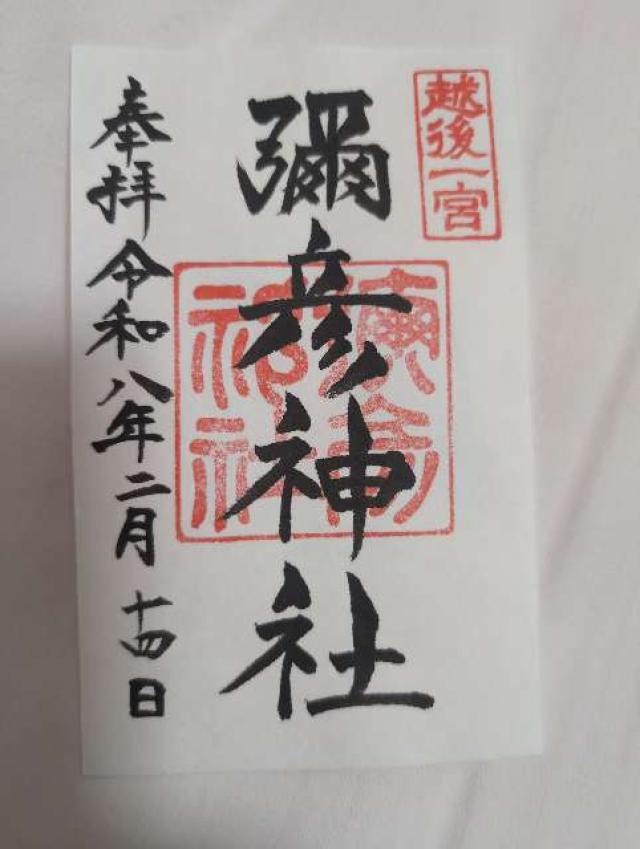 越後一宮
彌彦神社
奉拝令和八年二月十四日